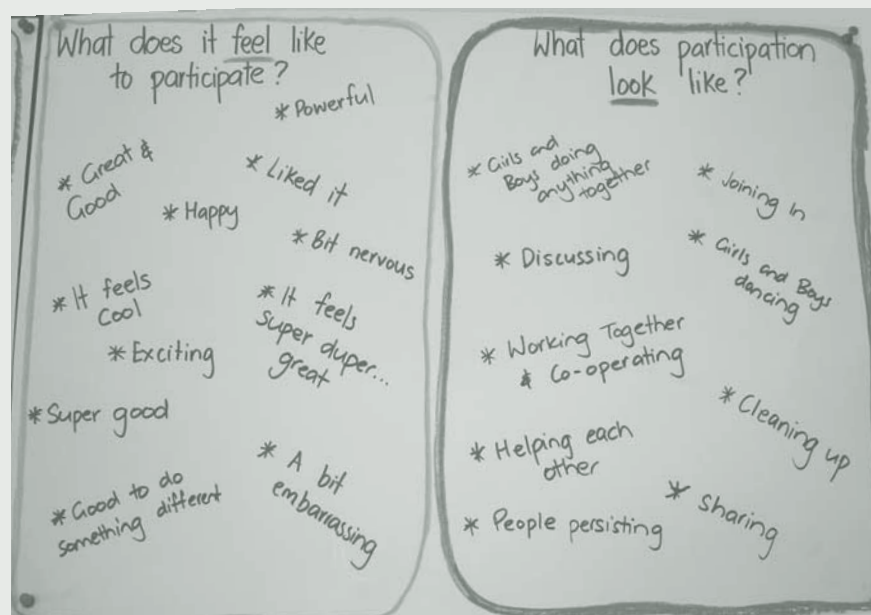 What does it feel like
to participate?
* Powerful
* Great &
Good
* Liked it
* Happy
* Bit nervous
* It feels
cool
* It feels
super duper...
great
* Exciting
* Super good
* A bit
embarrassing
* Good to do
something different
What does participation
look like?
* Girls and
Boys doing
anything
together
* Joining In
* Discussing
* Girls and Boys
dancing
* Working Together
& Co-operating
* Cleaning up
* Helping each
other
* Sharing
* People persisting